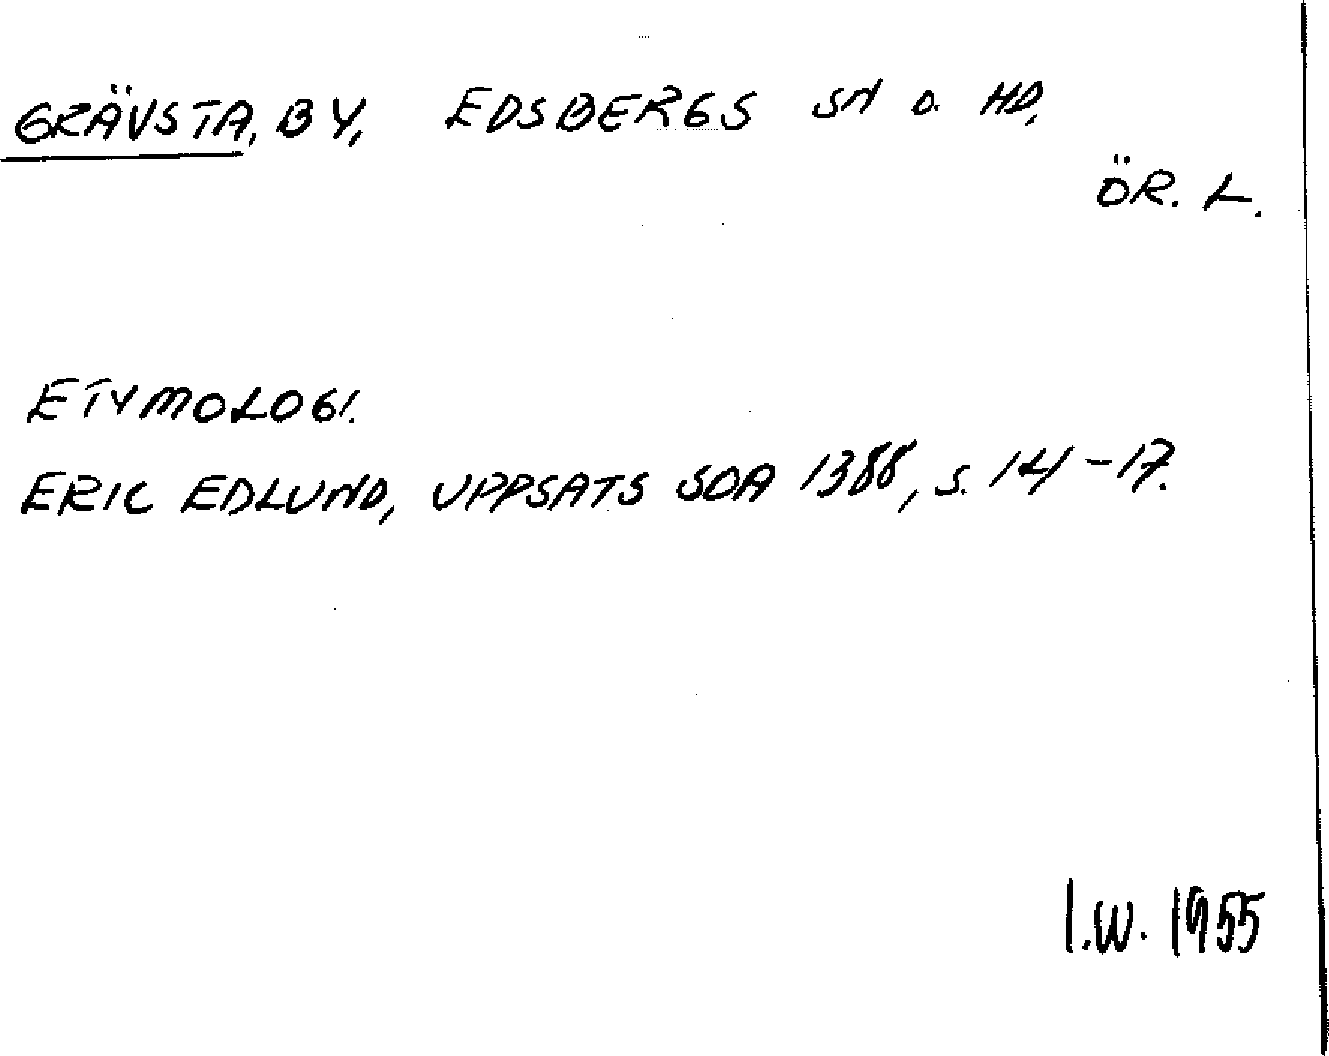 GRÄVSTA, BY, EDSBERGS SN O. HD,
ÖR. L.
ETYMOLOGI.
ERIC EDLUND, UPPSATS SOA 1388, S. 14-17.
I.W. 1955